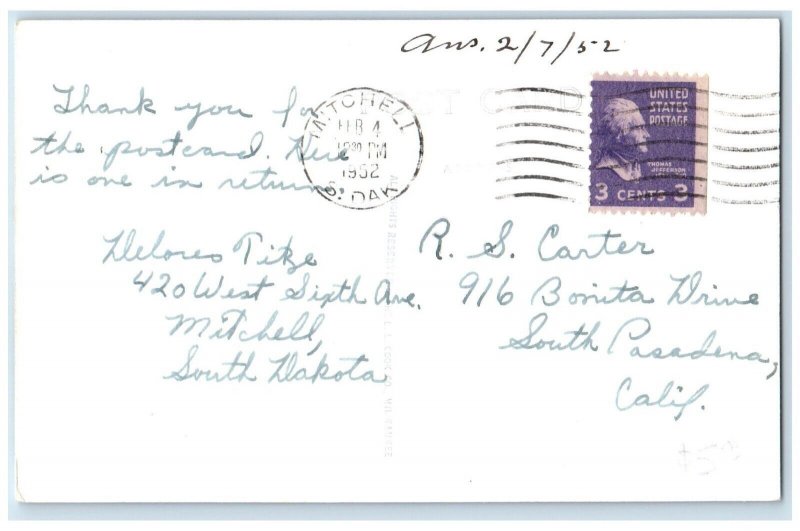 Ans. 2/7/52
Thank you for
the postcard. Here
is one in return.
MITCHELL
FEB 4
1952
S. DAK
UNITED
STATES
POSTAGE
THOMAS
JEFFERSON
3 CENTS 3
Delores Titze
420 West Sixth Ave.
Mitchell,
South Dakota
R. S. Carter
916 Bonita Drive
South Pasadena,
Calif.